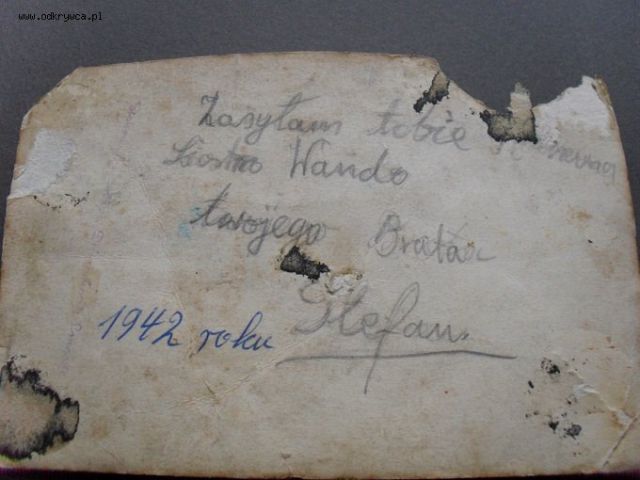 www.odkrywca.pl
Zasyłam tobie
Siostro Wando
twojego Brata
Stefan
1942 roku